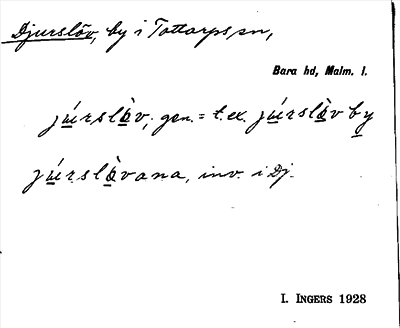 Djurslöv, by i Tottarps sn,
Bara hd, Malm. l.
júrslòv; gen. = t. ex. júrslòv by
júrslòvana, inv. i Dj.
I. INGERS 1928